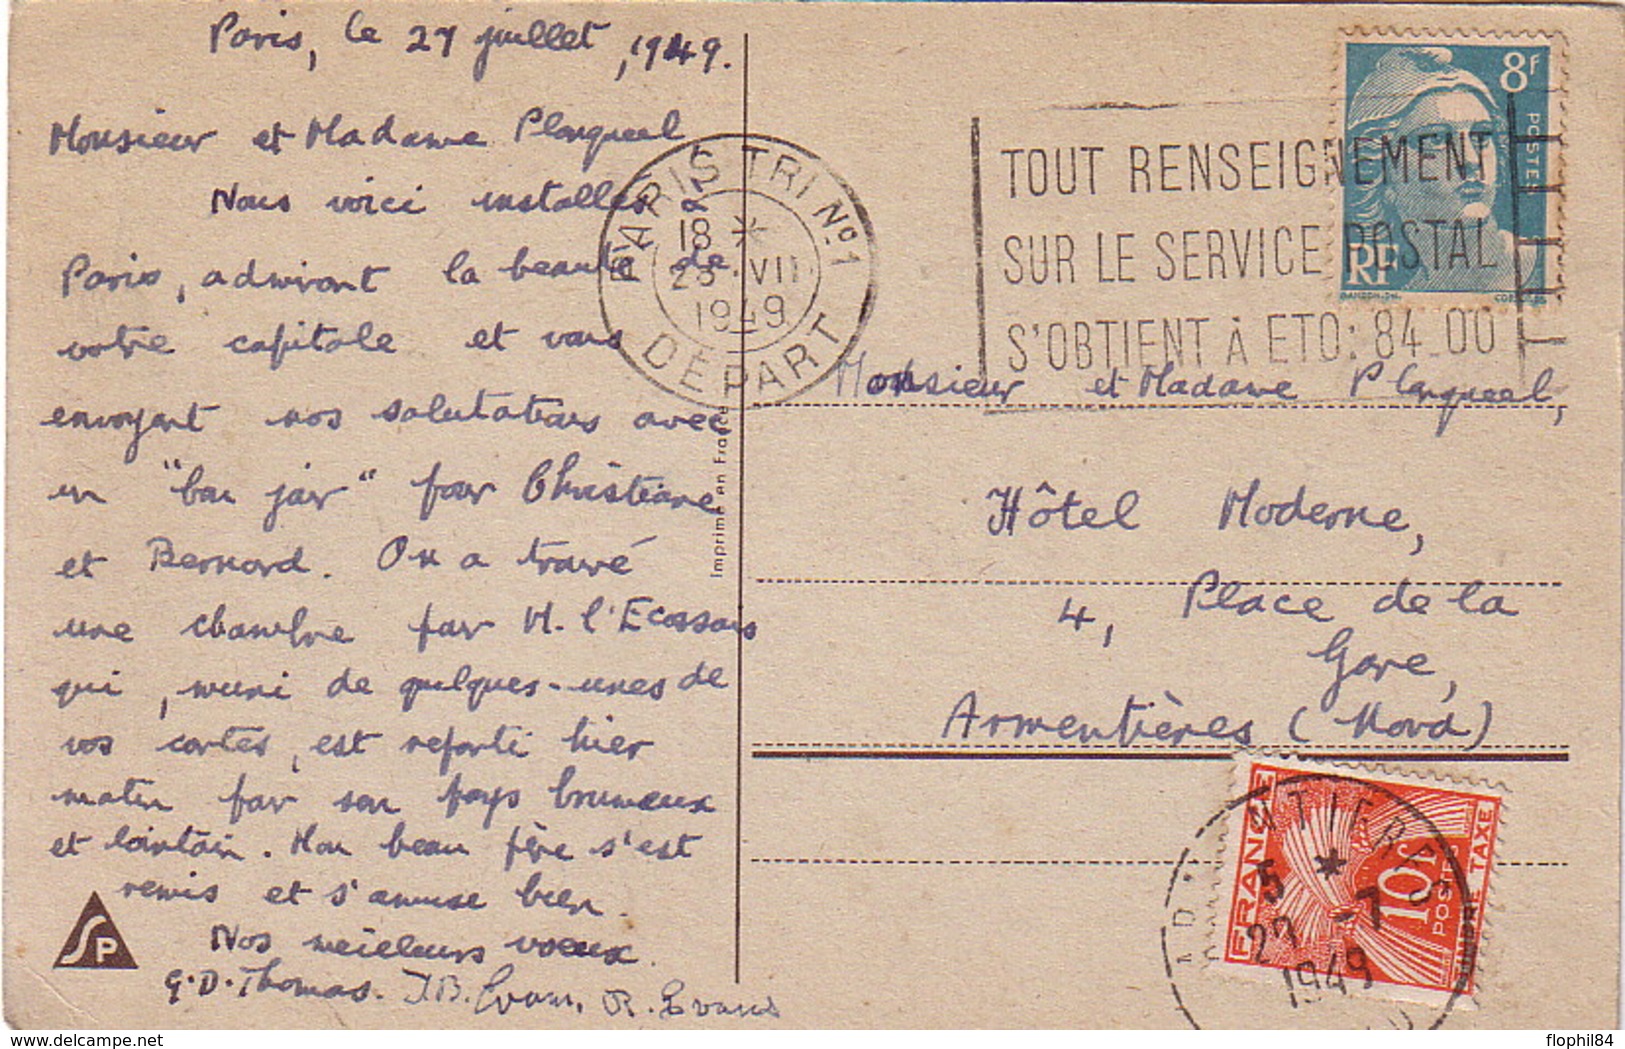 Paris, le 27 juillet, 1949.
Monsieur et Madame Planqueel
Nous voici installés à
Paris, admirant la beauté de
votre capitale et vous
envoyant nos salutations avec
un "bon jour" pour Christiane
et Bernard. On a trouvé
une chambre pour M. l'Ecossais
qui, muni de quelques-unes de
vos cartes, est reparti hier
matin pour son pays brumeux
et lointain. Mon beau père s'est
remis et s'amuse bien.
Nos meilleurs voeux.
G.D. Thomas. J.B. Evans, R. Evans
SP
Imprimé en France
PARIS TRI No 1
18 *
VII
1949
DÉPART
TOUT RENSEIGNEMENT
SUR LE SERVICE POSTAL
S'OBTIENT À ETO: 84_00
8f
POSTES
RF
GANDON-DEL
Monsieur et Madame Planqueel,
Hôtel Moderne,
4, Place de la
Gare,
Armentières (Nord)
FRANCE
10f
POSTES
TAXE
NTIERES
5 *
27 -7
1949
flophil84